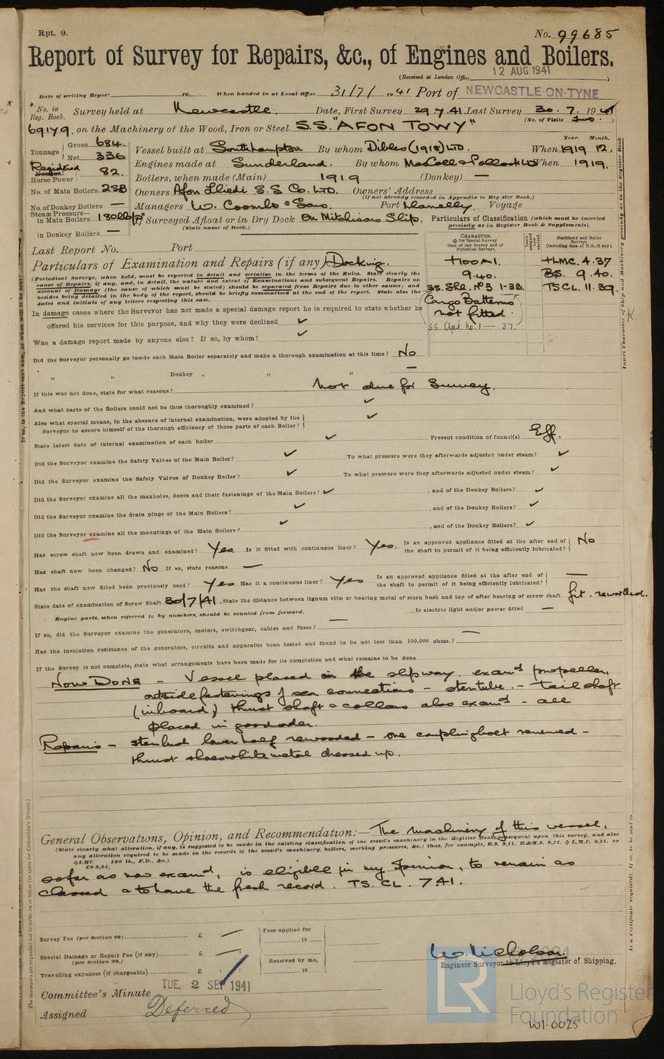 Rpt. 9.
No. 99685
Report of Survey for Repairs, &c., of Engines and Boilers.
(Received at London Office
12 AUG 1941
Date of writing Report 19 When handed in at Local Office 31/7/1941 Port of NEWCASTLE-ON-TYNE
No. in Reg. Book. Survey held at Newcastle. Date, First Survey 29.7.41 Last Survey 30.7.1941
(No. of Visits Two.)
69179, on the Machinery of the Wood, Iron or Steel S.S. "AFON TOWY"
Tonnage Gross 684. Net 336
Vessel built at Southampton By whom Dibles (1918) LTD. When 1919 12.
Year. Month.
Engines made at Sunderland. By whom MacColl & Pollock LTD When 1919.
Registered Horse Power 82.
Boilers, when made (Main) 1919 (Donkey) —
No. of Main Boilers 2SB Owners Afon Lliedi S.S Co. LTD. Owners' Address
(if not already recorded in Appendix to Register Book.)
No. of Donkey Boilers — Managers W. Coombs & Sons, Port Llanelly. Voyage
Steam Pressure in Main Boilers 180 lb Surveyed Afloat or in Dry Dock On Mitchisons Slip.
(State name of Dock.)
in Donkey Boilers —
Particulars of Classification (which must be inserted precisely as in Register Book & Supplements)
Last Report No. Port
Particulars of Examination and Repairs (if any) Docking.
+100A1. +LMC. 4.37
9.40. BS. 9.40.
SS. She. No. 3 1-33. TSCL. 11.39
Cargo Battens not fitted.
In damage cases where the Surveyor has not made a special damage report he is required to state whether he
offered his services for this purpose, and why they were declined ✓
Was a damage report made by anyone else? If so, by whom? ✓
Did the Surveyor personally go inside each Main Boiler separately and make a thorough examination at this time? No
„ „ Donkey „ „ —
If this was not done, state for what reasons? Not due for Survey.
And what parts of the Boilers could not be thus thoroughly examined? ✓
Also what special means, in the absence of internal examination, were adopted by the
Surveyor to assure himself of the thorough efficiency of those parts of each Boiler? ✓
State latest date of internal examination of each boiler ✓ Present condition of funnel(s) Eff.
Did the Surveyor examine the Safety Valves of the Main Boiler? ✓ To what pressure were they afterwards adjusted under steam? ✓
Did the Surveyor examine the Safety Valves of Donkey Boiler? ✓ To what pressure were they afterwards adjusted under steam? ✓
Did the Surveyor examine all the manholes, doors and their fastenings of the Main Boilers? ✓ , and of the Donkey Boilers? ✓
Did the Surveyor examine the drain plugs of the Main Boilers? ✓ , and of the Donkey Boilers? ✓
Did the Surveyor examine all the mountings of the Main Boilers? ✓ , and of the Donkey Boilers? ✓
Has screw shaft now been drawn and examined? Yes. Is it fitted with continuous liner? Yes. Is an approved appliance fitted at the after end of the shaft to permit of it being efficiently lubricated? No
Has shaft now been changed? No If so, state reasons —
Has the shaft now fitted been previously used? Yes Has it a continuous liner? Yes Is an approved appliance fitted at the after end of the shaft to permit of it being efficiently lubricated? —
State date of examination of Screw Shaft 30/7/41. State the distance between lignum vitæ or bearing metal of stern bush and top of after bearing of screw shaft fit - rewooded.
Engine parts, when referred to by numbers, should be counted from forward. Is electric light and/or power fitted —
If so, did the Surveyor examine the generators, motors, switchgear, cables and fuses? —
Has the insulation resistance of the generators, circuits and apparatus been tested and found to be not less than 100,000 ohms? —
If the Survey is not complete, state what arrangements have been made for its completion and what remains to be done
NOW DONE - Vessel placed on the slipway. examd propeller,
outside fastenings of sea connections - stern tube. - tail shaft
(inboard) thrust shaft & collars also examd - all
placed in good order.
Repairs - stern bush lower half rewooded - one coupling bolt renewed -
thrust shoes white metal dressed up.
General Observations, Opinion, and Recommendation:— The machinery of this vessel,
(State clearly what alteration, if any, is suggested to be made in the existing classification of the vessel's machinery in the Register Book, consequent upon this survey, and also
any alteration required to be made in the records of the vessel's machinery, boilers, working pressures, &c.; thus, for example, B.S. 9,11, B.&M.S. 9,11, L.M.C. 9,11, or
so far as now examd, is eligible in my opinion, to remain as
classed & to have the fresh record. TS. CL. 7.41.
Survey Fee (per Section 29) £ —
Special Damage or Repair Fee (if any) £ —
(per Section 29.)
Travelling expenses (if chargeable) £
Fees applied for 19
Received by me, 19
W. Nicholson
Engineer Surveyor to Lloyd's Register of Shipping.
Committee's Minute TUE. 2 SEP 1941
Assigned Deferred
LR
Lloyd's Register
Foundation
W1-0025